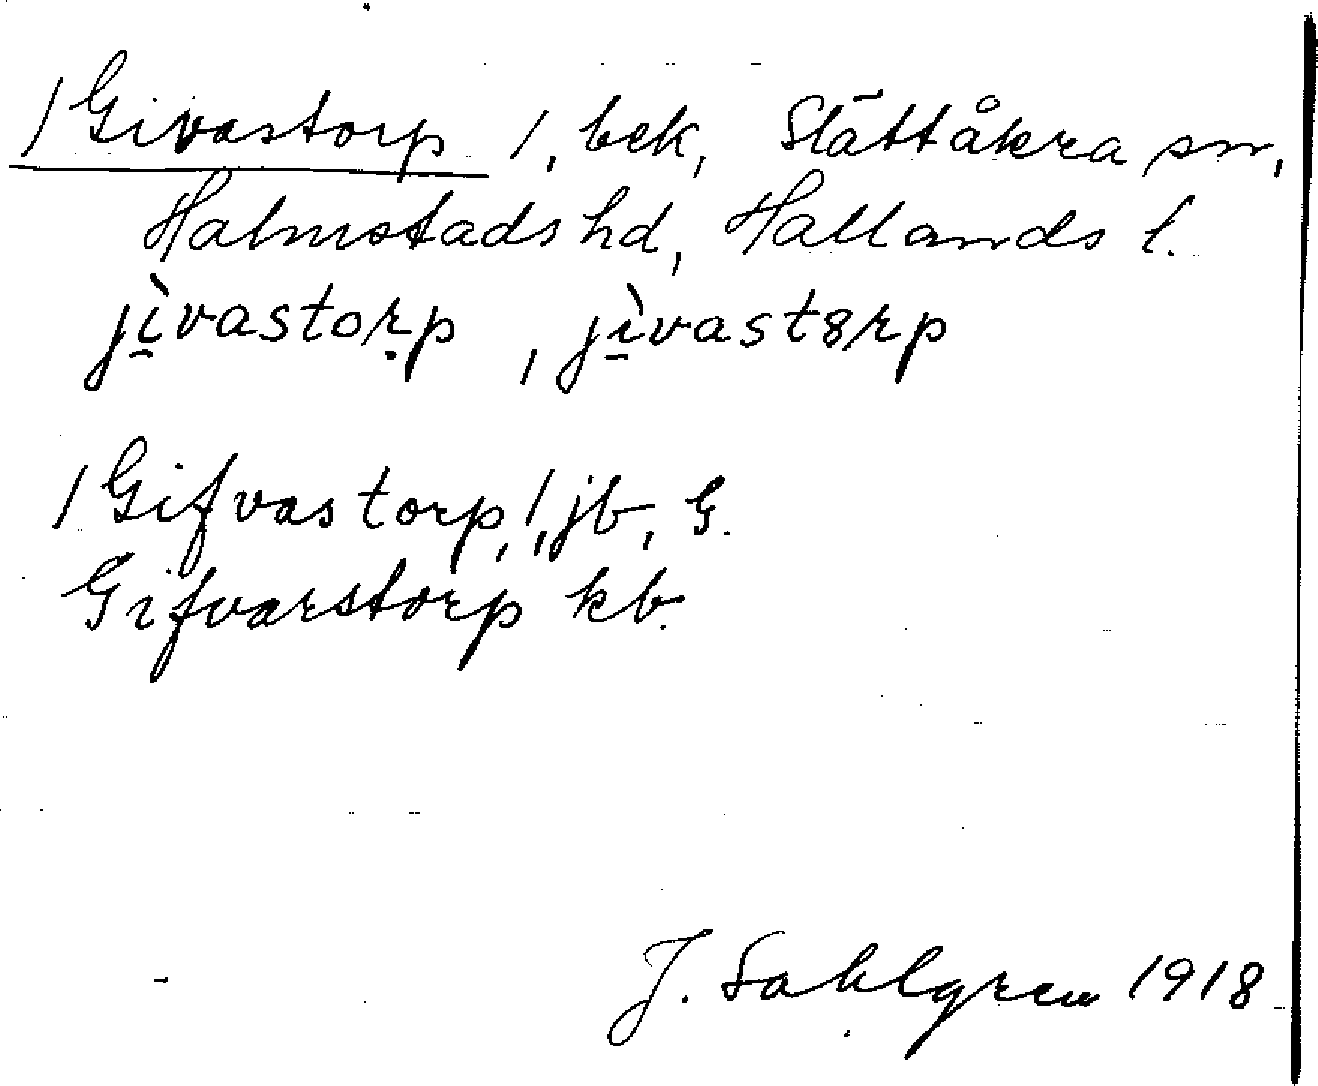 /Givastorp /, bek, Slättåkra sn,
Halmstads hd, Hallands l.
jì̱vastoṛp, jì̱vast8rp
/Gifvastorp,/, jb, G.
Gifvarstorp kb.
J. Sahlgren 1918